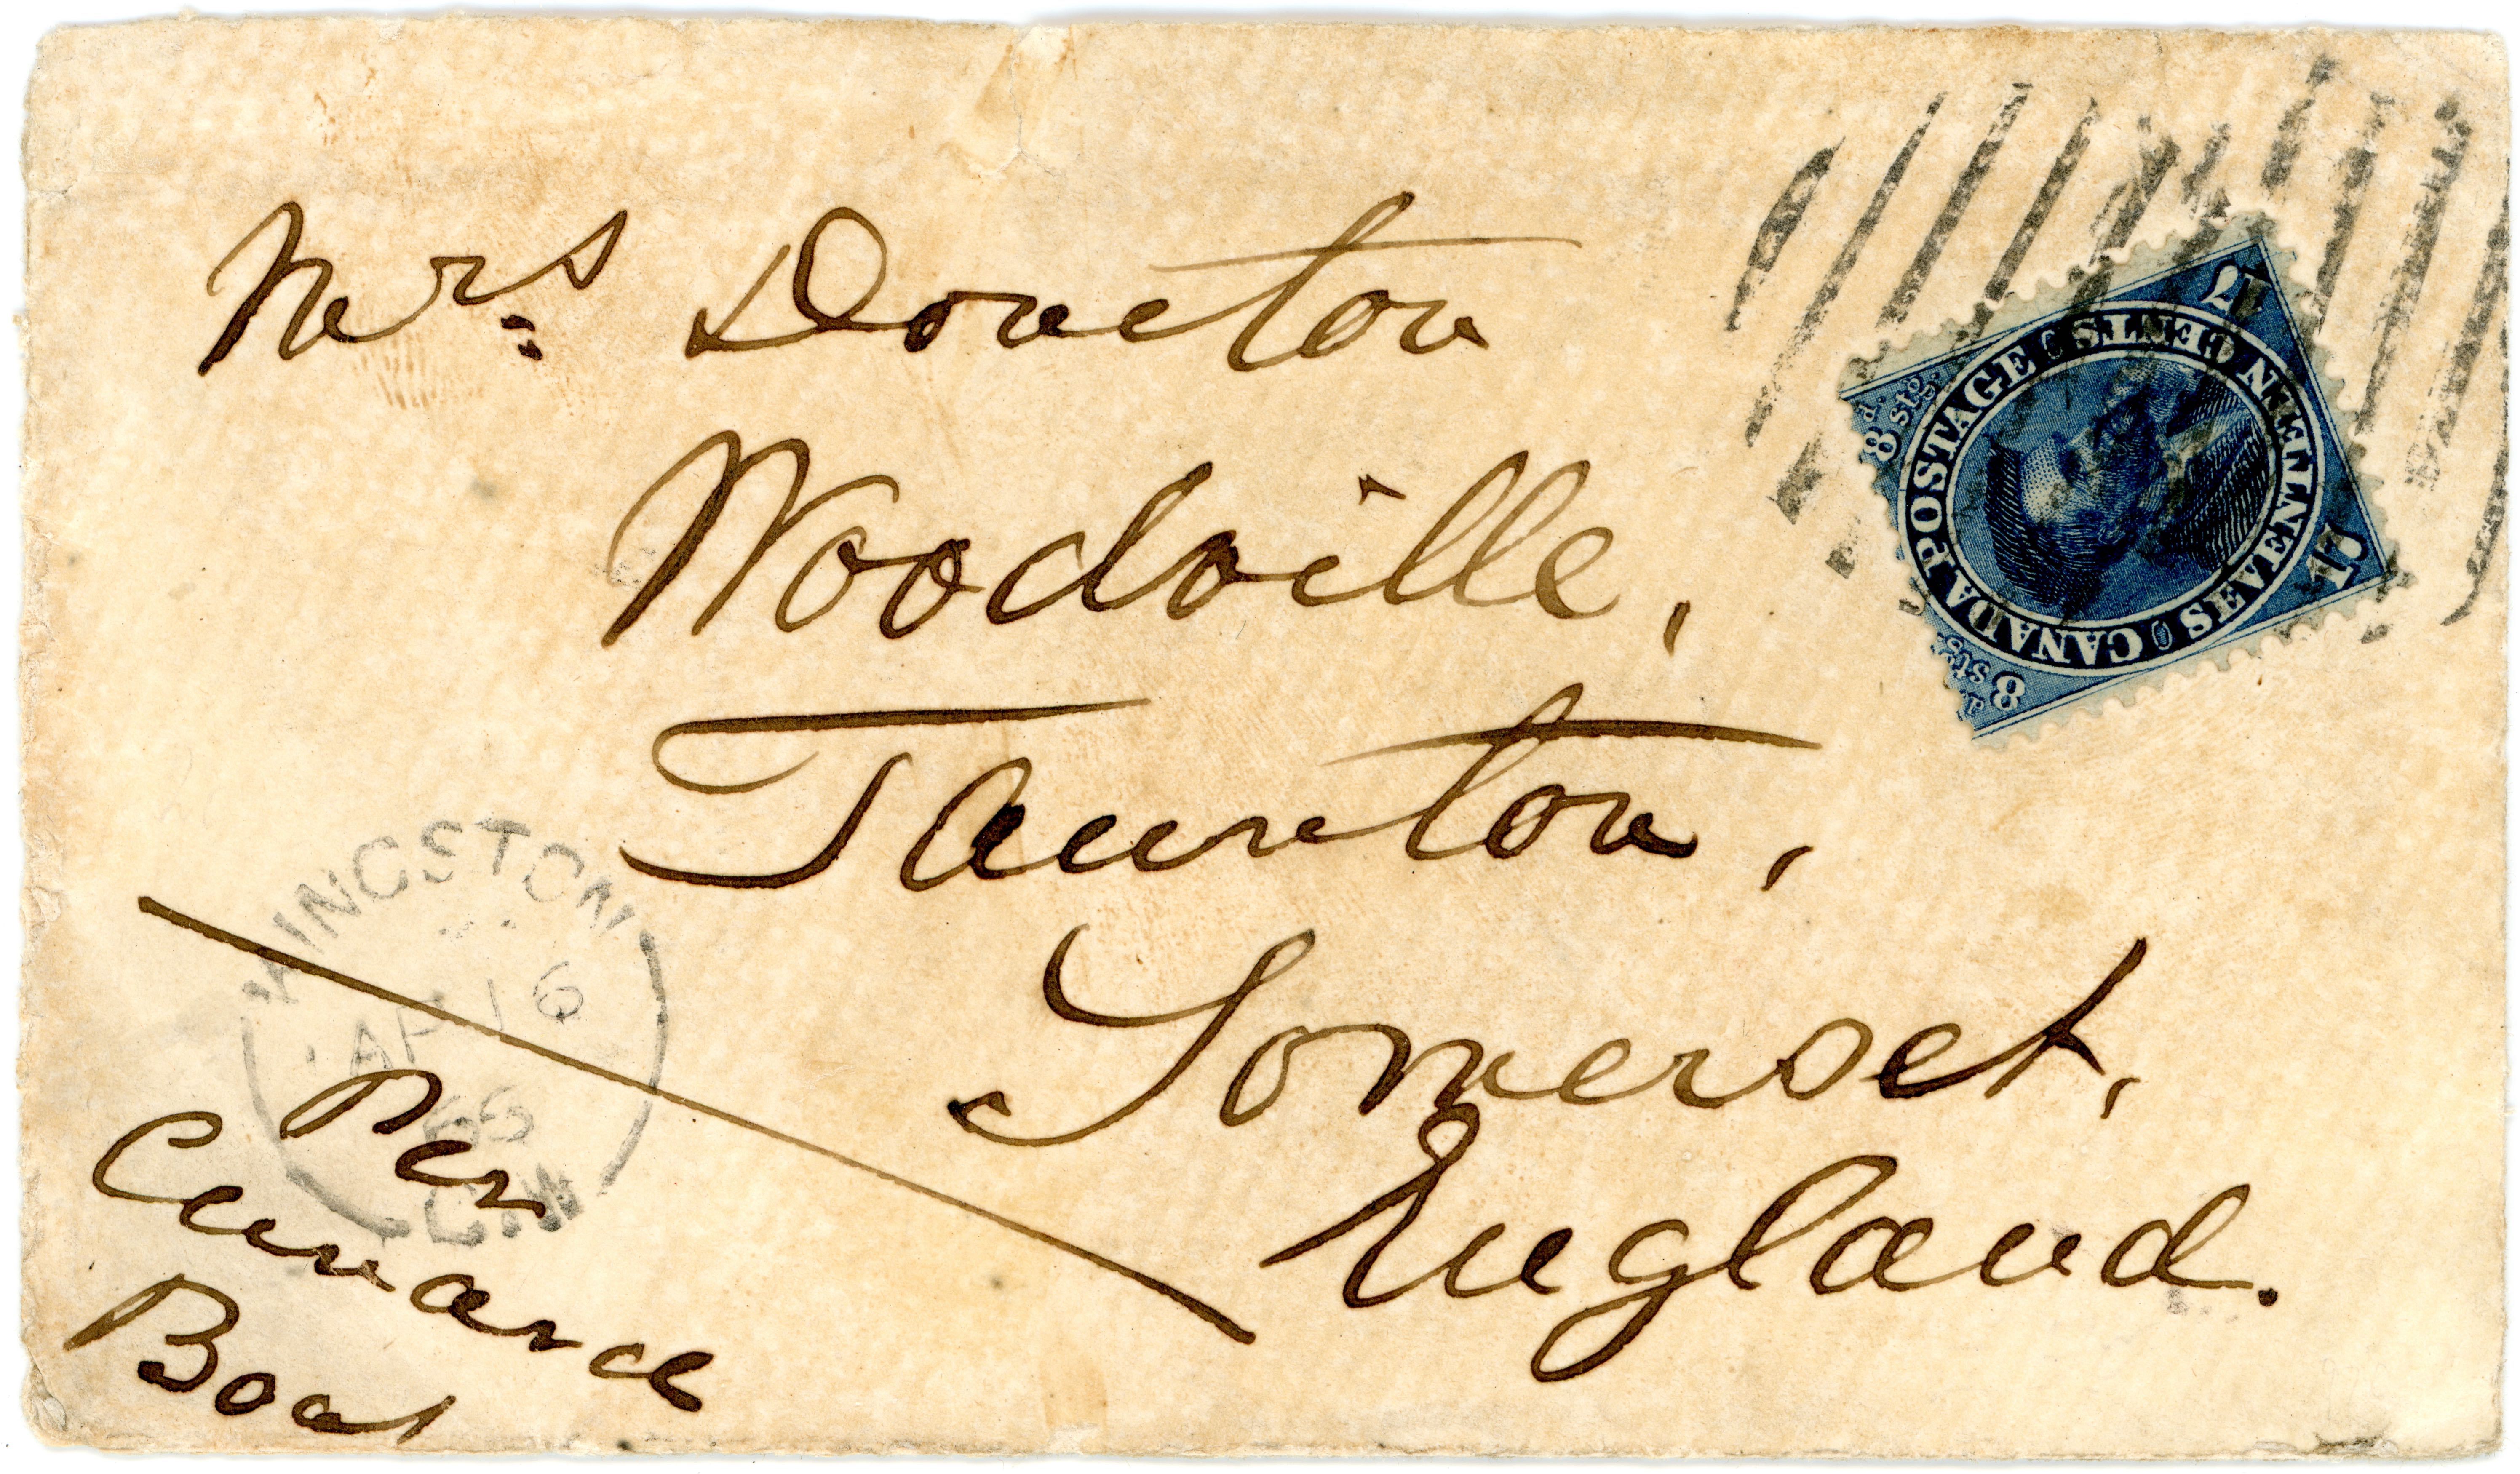 Mrs. Doveton
Woodville,
Taunton,
Somerset,
England.
Per
Cunard
Boat
KINGSTON
AP 16
65
C.W
CANADA POSTAGE
SEVENTEEN CENTS
17
17
8d. stg.
8d. stg.